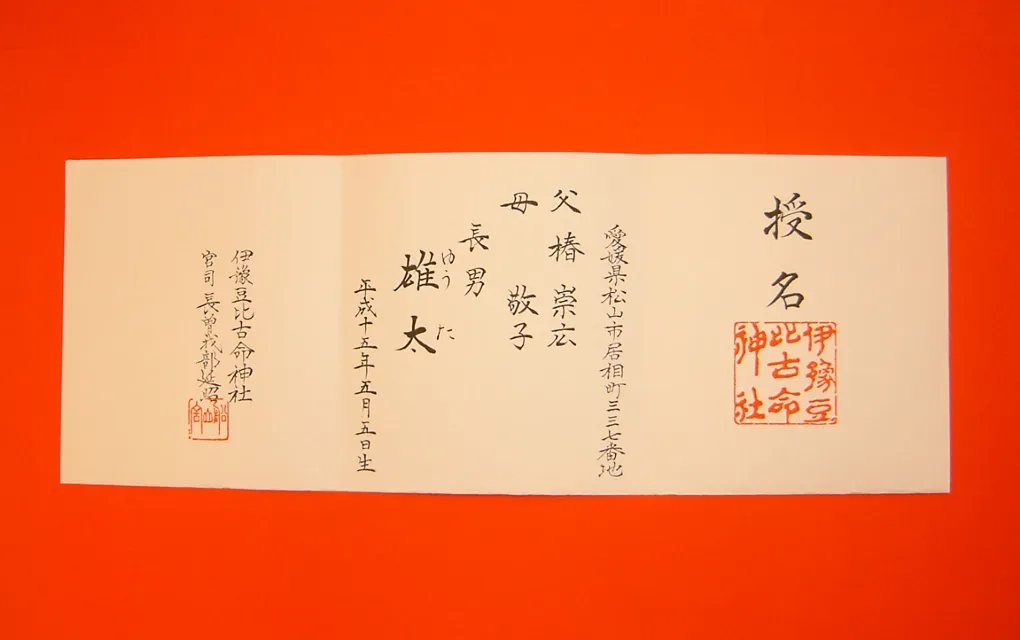 授名
伊豫豆
比古命
神社
愛媛県松山市居相町三三七番地
父 椿 崇広
母 敬子
長男
ゆうた
雄太
平成十五年五月五日生
伊豫豆比古命神社
宮司 長曽我部延昭